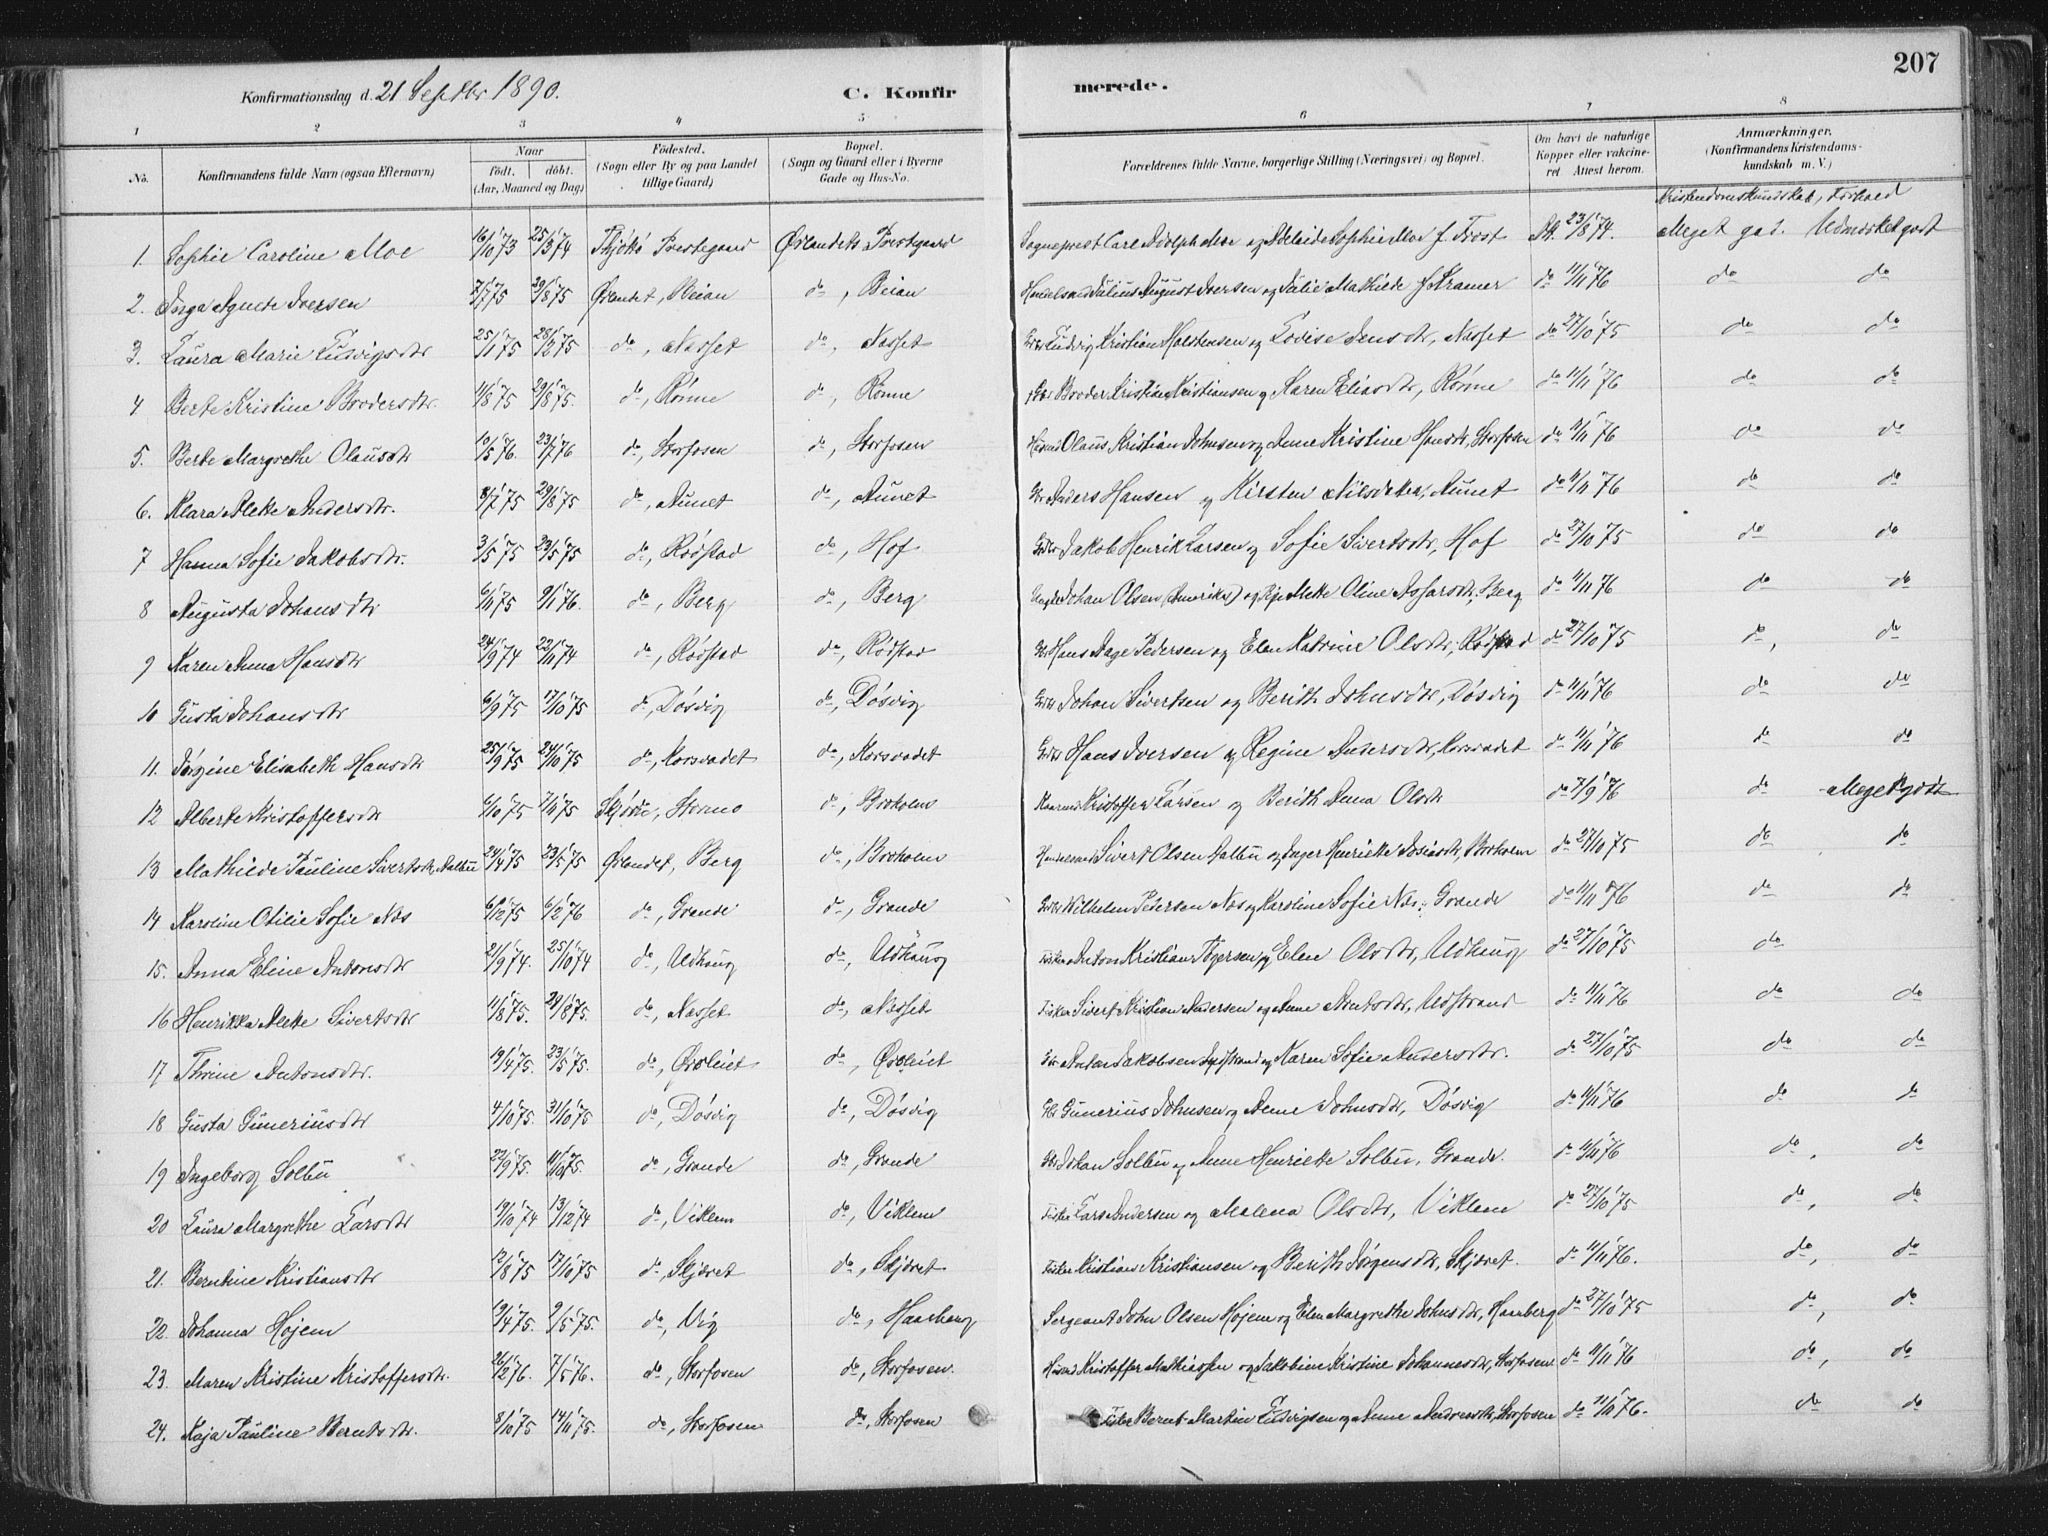 207
Konfirmationsdag d. 21 Septbr 1890. C. Konfirmerede.
1 2 3 4 5 6 7 8
No. Konfirmandens fulde Navn (ogsaa Efternavn) Naar födt. döbt. (Aar, Maaned og Dag) Födested. (Sogn eller By og paa Landet tillige Gaard) Bopæl. (Sogn og Gaard eller i Byerne Gade og Hus-No. Forældrenes fulde Navne, borgerlige Stilling (Næringsvei) og Bopæl. Om havt de naturlige Kopper eller vakcineret Attest herom. Anmærkninger. (Konfirmandens Kristendomskundskab m. V.)
Kristendomskundskab, Forhold
1. Sophie Caroline Moe 16/10 73 25/3 74 Prestegaard Ørlandets Prestegaard Sogneprest Carl Adolph Moe og Adelaide Sophie Moe f. Frost 23/8 74. Meget god. Udmærket godt
2. Inga Agnete Iversen 7/7 75 29/8 75 Ørlandet, Beian do, Beian Julius August Iversen og Julie Mathilde f. Kramer do 11/11 76 do do
3. Laura Marie Ludvigsdtr 25/11 75 28/12 75 do, Næsset do, Næsset Ludvig Kristian Holstensen og Lovise Jensdtr, Næsset do 27/10 75 do do
4 Berte Kristine Brodersdtr. 11/8 75 29/8 75. do, Rønne do, Rønne Broder Kristian Kristiansen og Karen Eliasdtr, Rønne do 11/11 76 do do
5. Berte Margrethe Olausdtr 10/5 76. 23/7 76 do, Storfosen do, Storfosen Olaus Kristian Johnsen og Anne Kristine Hansdtr, Storfosen do 11/11 76 do do
6. Klara Mette Andersdtr. 8/7 75 29/8 75 do, Aunet do, Aunet Anders Hansen og Kirsten Nilsdatter, Aunet do 11/11 76 do do
7 Hanna Sofie Jakobsdtr. 3/5 75 23/5 75 do, Rødstad do, Hof Jakob Henrik Larsen og Sofie Sivertsdtr, Hof do 27/10 75 do do
8 Augusta Johansdtr 6/11 75 9/1 76. do, Berg do, Berg Johan Olsen (Amerika) og Mette Oline Assarsdtr, Berg do 11/11 76 do do
9 Karen Anna Hansdtr 24/9 74 22/11 74 do, Rødstad do, Rødstad Hans Aage Pedersen og Elen Katrine Olsdtr, Rødstad do 27/10 75 do, do
10 Gusta Johansdtr 6/9 75 17/10 75 do, Døsvig do, Døsvig Johan Sivertsen og Berith Johnsdtr, Døsvig do 11/11 76 do do
11. Jørgine Elisabeth Hansdtr 25/9 75 24/10 75 do, Korsvadet do, Korsvadet Hans Iversen og Regine Andersdtr, Korsvadet do 11/11 76 do do
12 Alberte Kristoffersdtr 6/10 75 7/11 75 Stormo do, Borholm Kristoffer Larsen og Berith Anna Olsdtr do 7/9 76 do Meget godt
13 Mathilde Pauline Sivertsdtr. Aalbu 24/4 75 23/5 75 Ørlandet, Berg do, Borholm Sivert Olsen Aalbu og Inger Henrikke Josiasdtr, Borholm do 27/10 75 do do
14 Karoline Otilie Sofie Næs 6/12 75 6/2 76 do, Grande do, Grande Vilhelm Pedersen Næs og Karoline Sofie Næs, Grande do 11/11 76 do do
15. Anna Eline Antonsdtr 21/9 74. 25/10 74 do, Udhaug do, Udhaug Fisker Anton Kristian Tøgersen og Elen Olsdtr, Udhaug do 27/10 75 do
16 Henrikka Mette Sivertsdtr 11/8 75. 29/8 75. do, Næsset do, Næsset Fisker Sivert Kristian Andersen og Anne Arntsdtr, Udstrand do 11/11 76 do do
17 Thrine Antonsdtr. 19/4 75. 23/5 75. do, do, Anton Jakobsen og Karen Sofie Andersdtr. do 27/10 75 do do
18 Gusta Gunneriusdtr 4/10 75. 31/10 75 do, Døsvig do, Døsvig Gunerius Johnsen og Anne Johnsdtr, Døsvig do 11/11 76 do do
19 Ingeborg Solbu 22/9 75. 11/10 75. do, Grande do, Grande Johan Solbu og Anne Henrikke Solbu, Grande. do 11/11 76 do, do
20 Laura Margrethe Larsdtr 19/10 74 13/12 74 do, Viklem do, Viklem Fisker Lars Andersen og Malena Olsdtr, Viklem do 27/10 75 do, do
21. Berntine Kristiansdtr 12/8 75 17/10 75 do, Skjæret do, Skjæret Fisker Kristian Kristiansen og Berith Jørgensdtr, Skjæret. do 11/11 76. do, do
22. Johanna Højem 19/4 75. 9/5 75. do, Vig do, Sergeant John Olsen Højem og Elen Margrethe Johnsdtr, do 27/10 75 do, do
23. Maren Kristine Kristoffersdtr. 26/2 76. 7/5 76. do, Storfosen do, Storfosen. Kristoffer Mathiassen og Jakobine Kristine Johannesdtr, Storfosen do 11/11 76 do, do
24. Kaja Pauline Berntsdtr. 8/10 75 14/11 75. do, Storfosen do, Storfosen Fisker Bernt Martin Ludvigsen og Anne Andreasdtr, Storfosen do 11/11 76. do do